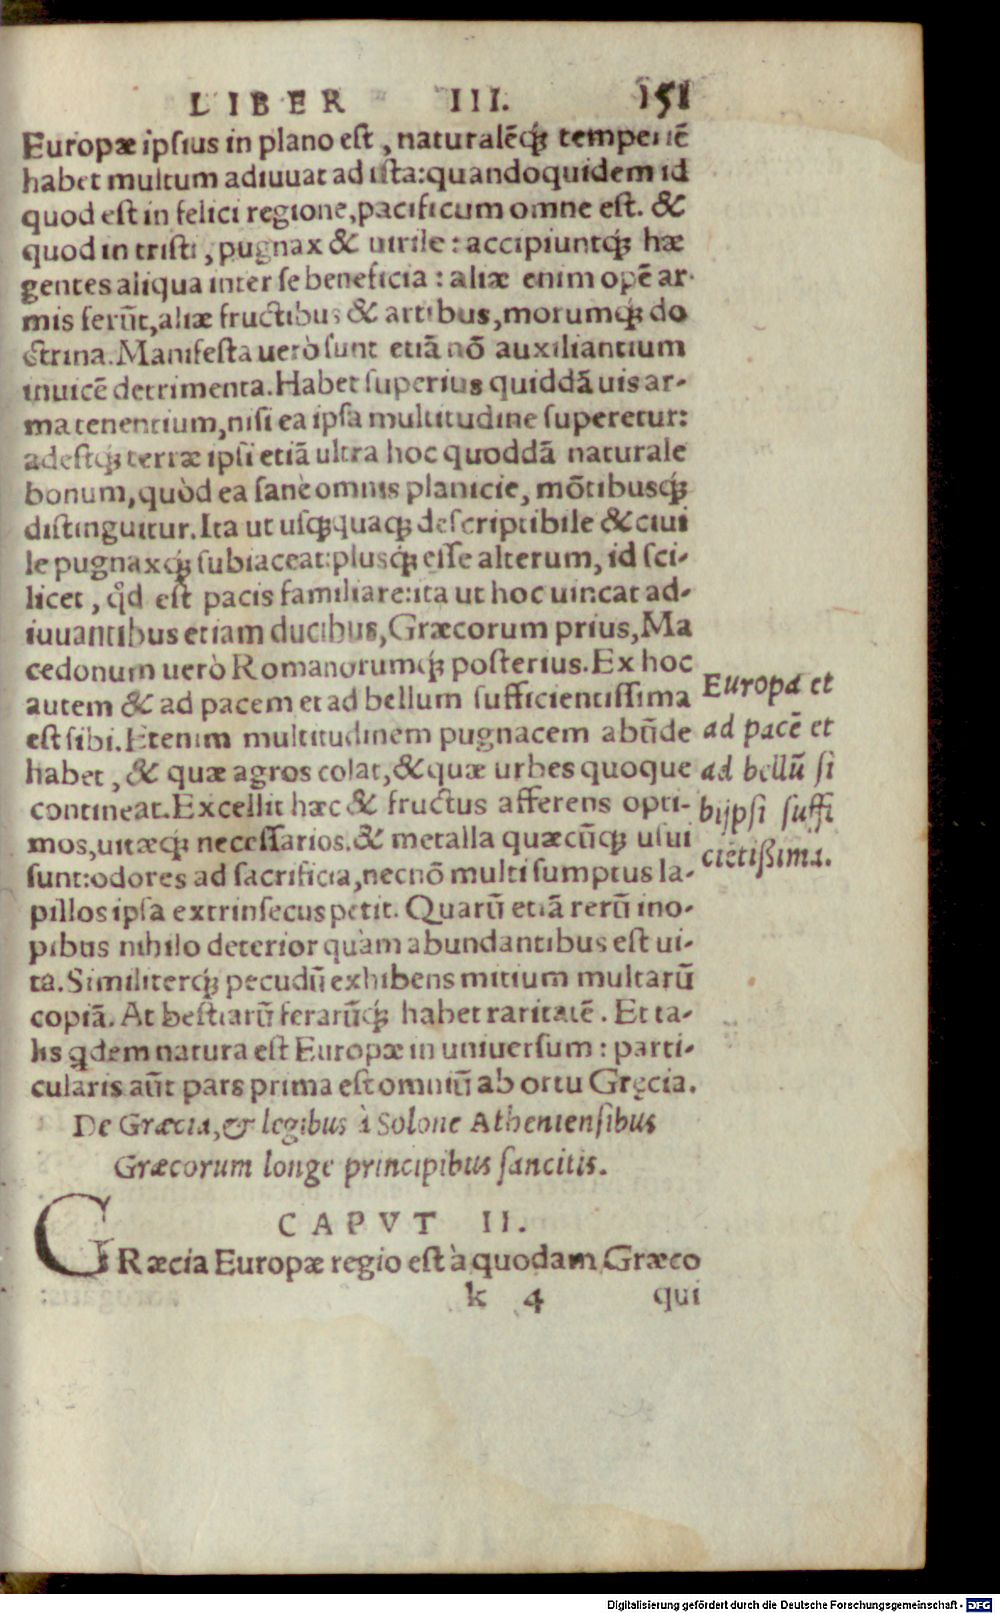 LIBER III. 151
Europæ ipsius in plano est, naturalẽq́; temperiẽ
habet multum adiuuat ad ista: quandoquidem id
quod est in felici regione, pacificum omne est. &
quod in tristi, pugnax & uirile: accipiuntq́; hæ
gentes aliqua inter se beneficia: aliæ enim opẽ ar-
mis ferũt, aliæ fructibus & artibus, morumq́; do
ctrina. Manifesta uerò sunt etiã nõ auxiliantium
inuicẽ detrimenta. Habet superius quiddã uis ar-
ma tenentium, nisi ea ipsa multitudine superetur:
adestq́; terræ ipsi etiã ultra hoc quoddã naturale
bonum, quòd ea sanè omnis planicie, mõtibusq́;
distinguitur. Ita ut usq́;quaq́; descriptibile & ciui
le pugnaxq́; subiaceat: plusq́; esse alterum, id sci-
licet, qd̾ est pacis familiare: ita ut hoc uincat ad-
iuuantibus etiam ducibus, Græcorum prius, Ma
cedonum uerò Romanorumq́; posterius. Ex hoc
autem & ad pacem et ad bellum sufficientissima
est sibi. Etenim multitudinem pugnacem abũde
habet, & quæ agros colat, & quæ urbes quoque
contineat. Excellit hæc & fructus afferens opti-
mos, uitæq́; necessarios. & metalla quæcũq́; usui
sunt: odores ad sacrificia, necnõ multi sumptus la-
pillos ipsa extrinsecus petit. Quarũ etiã rerũ ino-
pibus nihilo deterior quàm abundantibus est ui-
ta. Similiterq́; pecudũ exhibens mitium multarũ
copiã. At bestiarũ ferarũq́; habet raritatẽ. Et ta-
lis qdem natura est Europæ in uniuersum: parti-
cularis aũt pars prima est omniũ ab ortu Gręcia.
Europa et
ad pacẽ et
ad bellũ si
bijpsi suffi
ciẽtißima.
De Græcia, & legibus à Solone Atheniensibus
Græcorum longe principibus sancitis.
CAPVT II.
GRæcia Europæ regio est à quodam Græco
k 4 qui
Digitalisierung gefördert durch die Deutsche Forschungsgemeinschaft - DFG